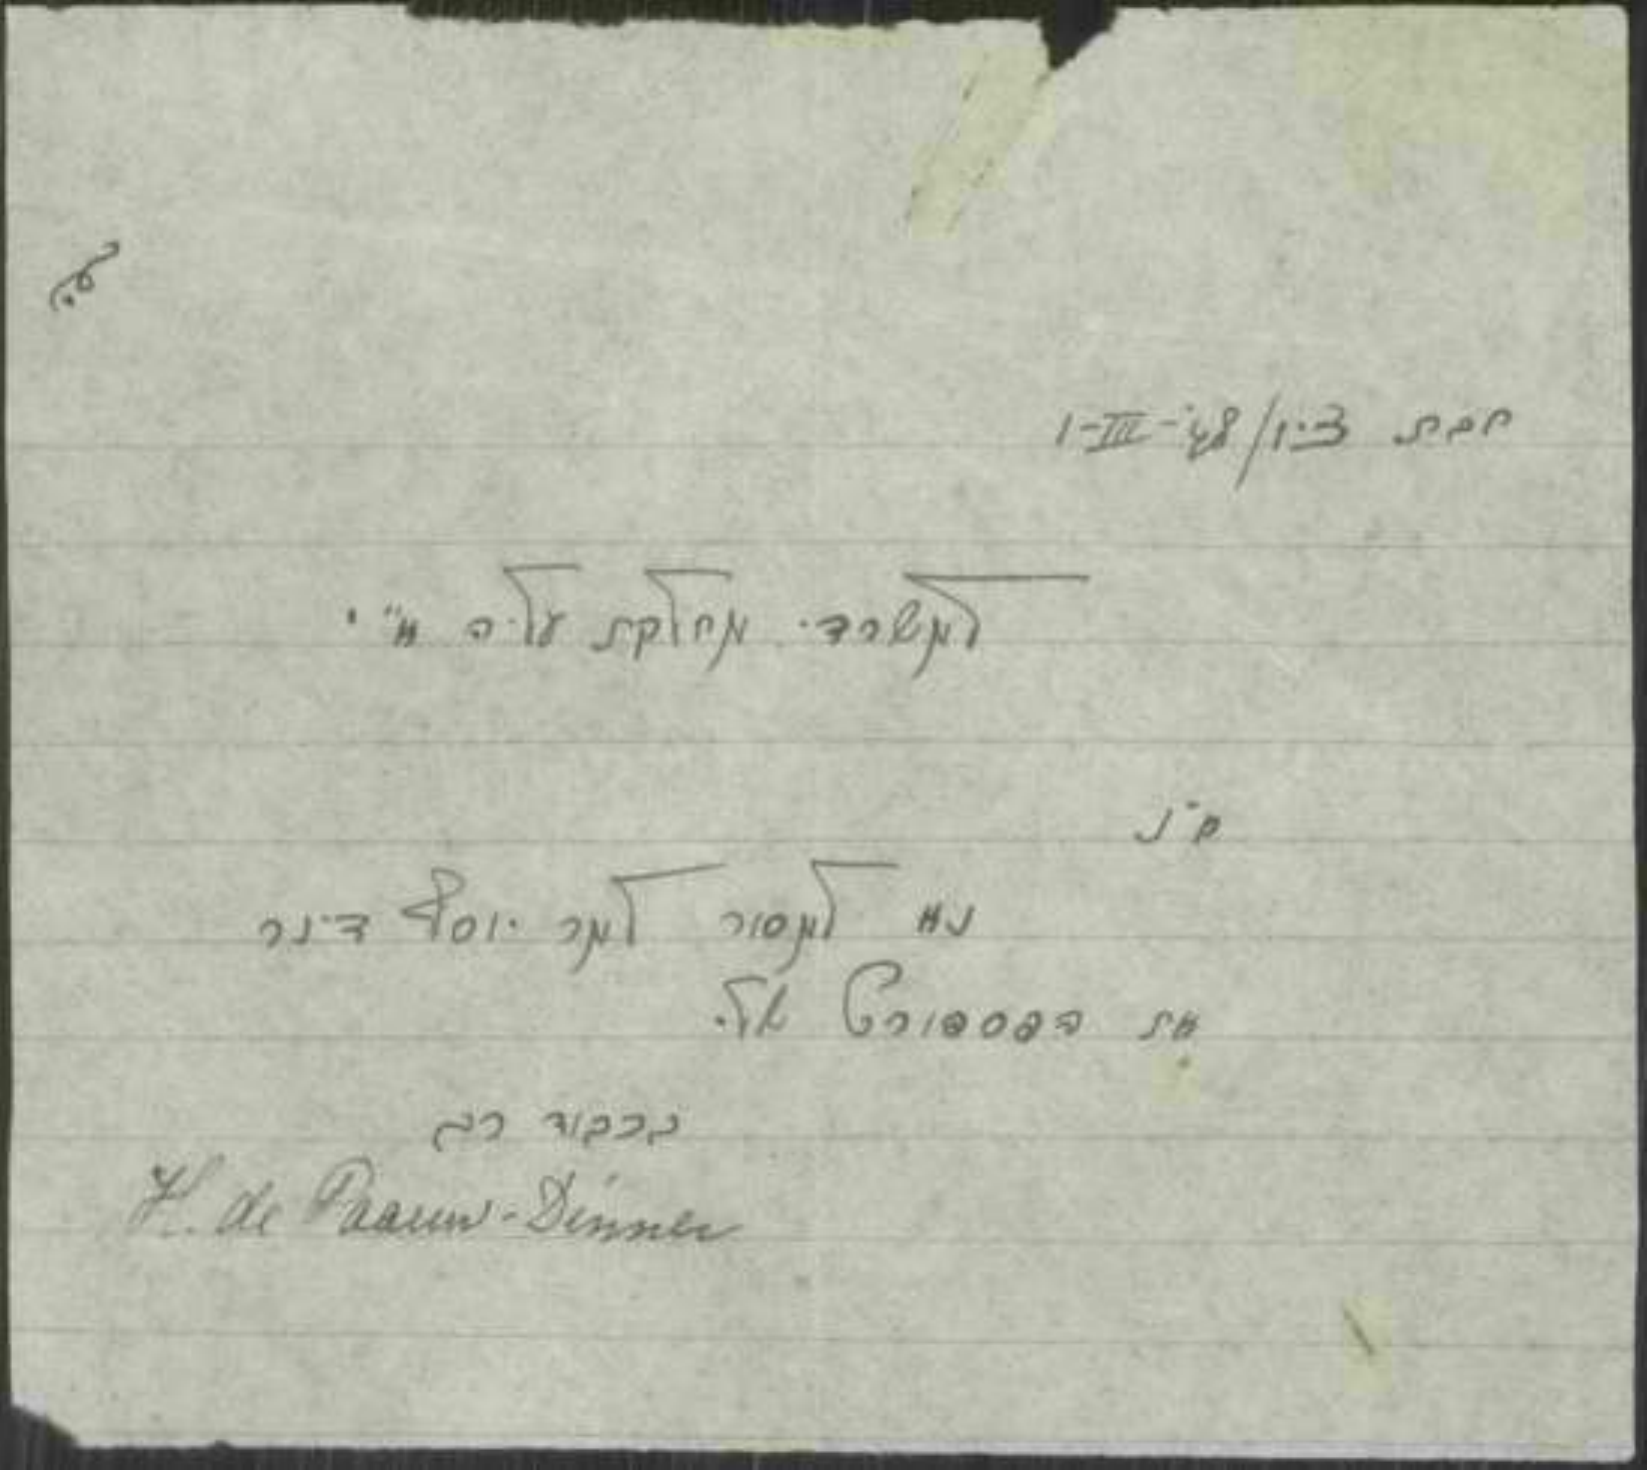 חבת ציון/ 1-III-48'
למשרדי מחלקת עליה א"י
א.נ
נא למסור למר יוסף דינר
את הפספורט שלי.
בכבוד רב
H. de Paauw-Dinner